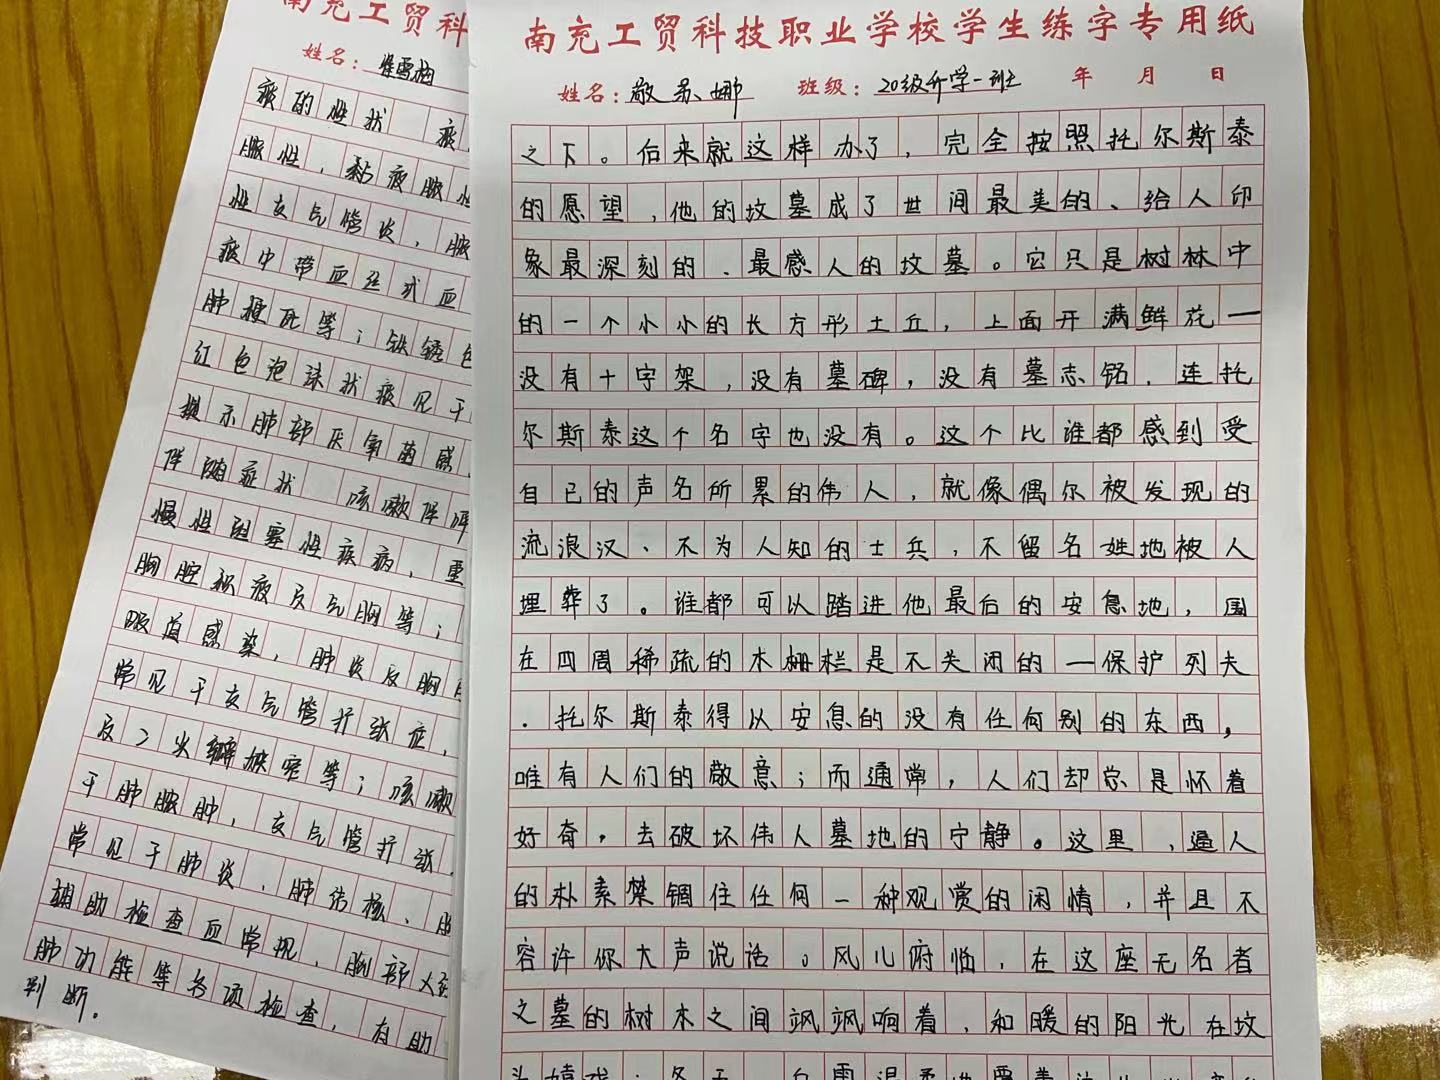 南充工贸科
姓名：
痰的性状 痰
脓性，黏液脓性
性支气管炎，脓
痰中带血丝或血
肺梗死等；铁锈色
红色泡沫状痰见于
提示肺部厌氧菌感
伴随症状 咳嗽伴呼
慢性阻塞性疾病，重
胸腔积液及气胸等；
吸道感染，肺炎反胸
常见于支气管扩张症，
及二尖瓣狭窄等；咳嗽
于肺脓肿，支气管扩张
常见于肺炎，肺结核、
辅助检查血常规，胸部
肺功能等各项检查，有助
判断。
南充工贸科技职业学校学生练字专用纸
姓名：敬苏娜 班级：20级升学一班 年 月 日
之下。后来就这样办了，完全按照托尔斯泰
的愿望，他的坟墓成了世间最美的、给人印
象最深刻的、最感人的坟墓。它只是树林中
的一个小小的长方形土丘，上面开满鲜花一
没有十字架，没有墓碑，没有墓志铭，连托
尔斯泰这个名字也没有。这个比谁都感到受
自己的声名所累的伟人，就像偶尔被发现的
流浪汉、不为人知的士兵，不留名姓地被人
埋葬了。谁都可以踏进他最后的安息地，围
在四周稀疏的木栅栏是不关闭的一保护列夫
．托尔斯泰得以安息的没有任何别的东西，
唯有人们的敬意；而通常，人们却总是怀着
好奇，去破坏伟人墓地的宁静。这里，逼人
的朴素禁锢住任何一种观赏的闲情，并且不
容许你大声说话。风儿俯临，在这座无名者
之墓的树木之间飒飒响着，和暖的阳光在坟